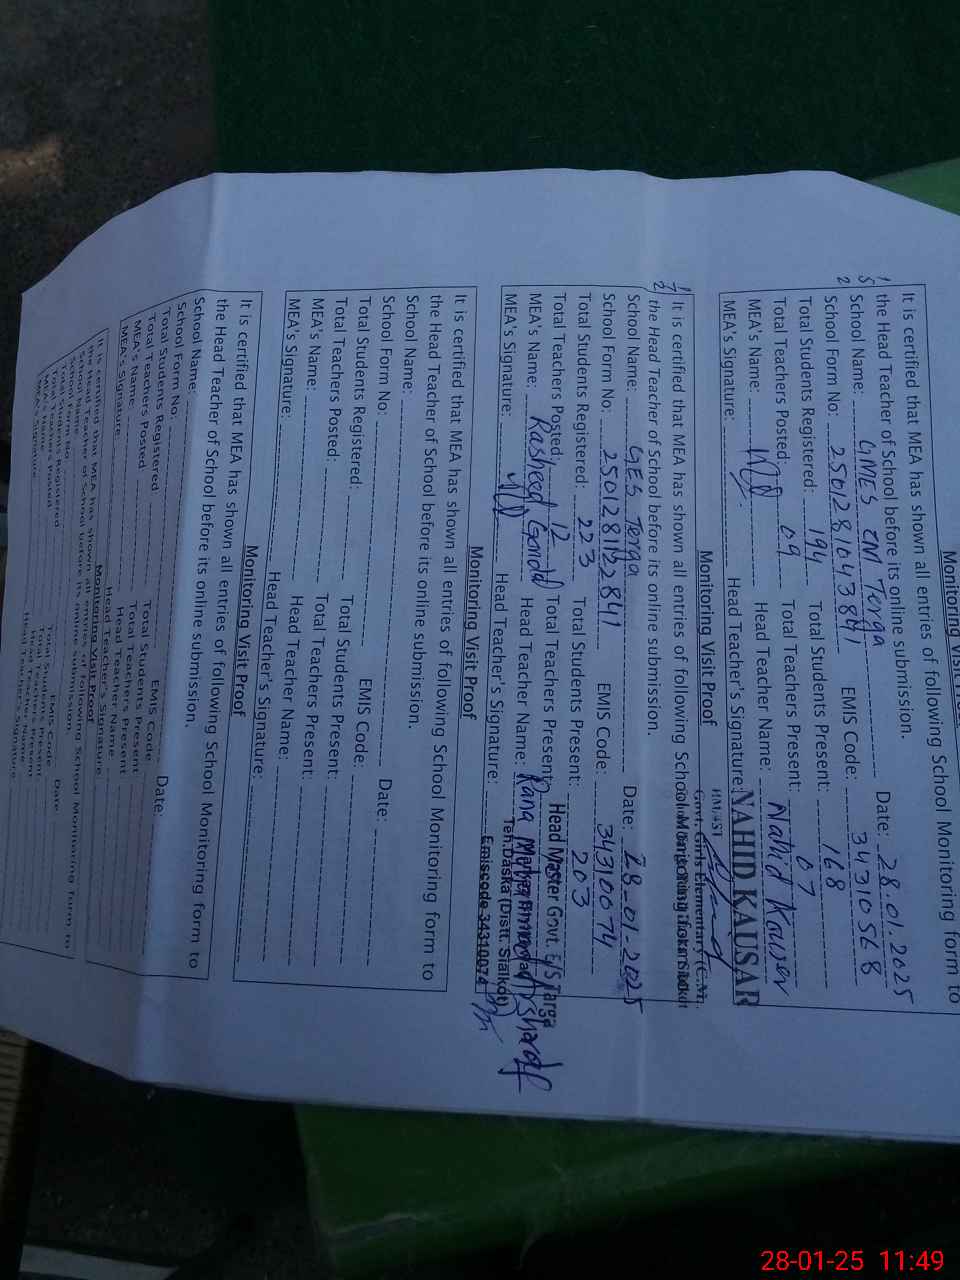 It is certified that MEA has shown all entries of following School Monitoring form to
the Head Teacher of School before its online submission.
School Name: GMES CM Targa Date: 28.01.2025
School Form No: 2501281043841 EMIS Code: 34310568
Total Students Registered: 194 Total Students Present: 168
Total Teachers Posted: 09 Total Teachers Present: 07
MEA's Name: Head Teacher Name: Nahid Kouser
MEA's Signature: Head Teacher's Signature: NAHID KAUSAR
Govt. Girls Elementary (C.M)
Monitoring Visit Proof
It is certified that MEA has shown all entries of following School Monitoring form to
the Head Teacher of School before its online submission.
School Name: GES Targa Date: 28-01-2025
School Form No: EMIS Code: 34310074
Total Students Registered: 223 Total Students Present: 203
Total Teachers Posted: 12 Total Teachers Present:
Head Master Govt. E/S Targa
MEA's Name: Rasheed Head Teacher Name: Rana
Teh.Daska (Distt. Sialkot)
MEA's Signature: Head Teacher's Signature:
Emiscode 34310074
Monitoring Visit Proof
It is certified that MEA has shown all entries of following School Monitoring form to
the Head Teacher of School before its online submission.
School Name: Date:
School Form No: EMIS Code:
Total Students Registered: Total Students Present:
Total Teachers Posted: Total Teachers Present:
MEA's Name: Head Teacher Name:
MEA's Signature: Head Teacher's Signature:
Monitoring Visit Proof
It is certified that MEA has shown all entries of following School Monitoring form to
the Head Teacher of School before its online submission.
School Name: Date:
School Form No: EMIS Code:
Total Students Registered Total Students Present
Total Teachers Posted Total Teachers Present
MEA's Name: Head Teacher Name:
MEA's Signature: Head Teacher's Signature:
Monitoring Visit Proof
It is certified that MEA has shown all entries of following School Monitoring form to
the Head Teacher of School before its online submission.
School Name Date:
School Form No EMIS Code
Total Students Registered Total Students Present
Total Teachers Posted Total Teachers Present
MEA's Name Head Teacher Name
MEA's Signature Head Teacher's Signature
28-01-25 11:49